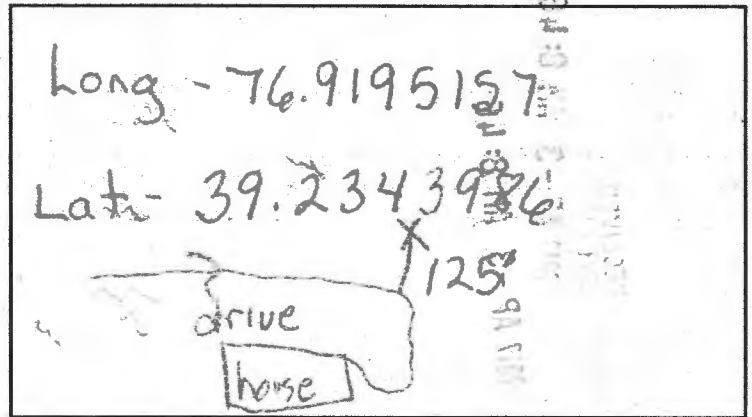 Long - 76.9195157
Lat - 39.2343986
X
125'
drive
house